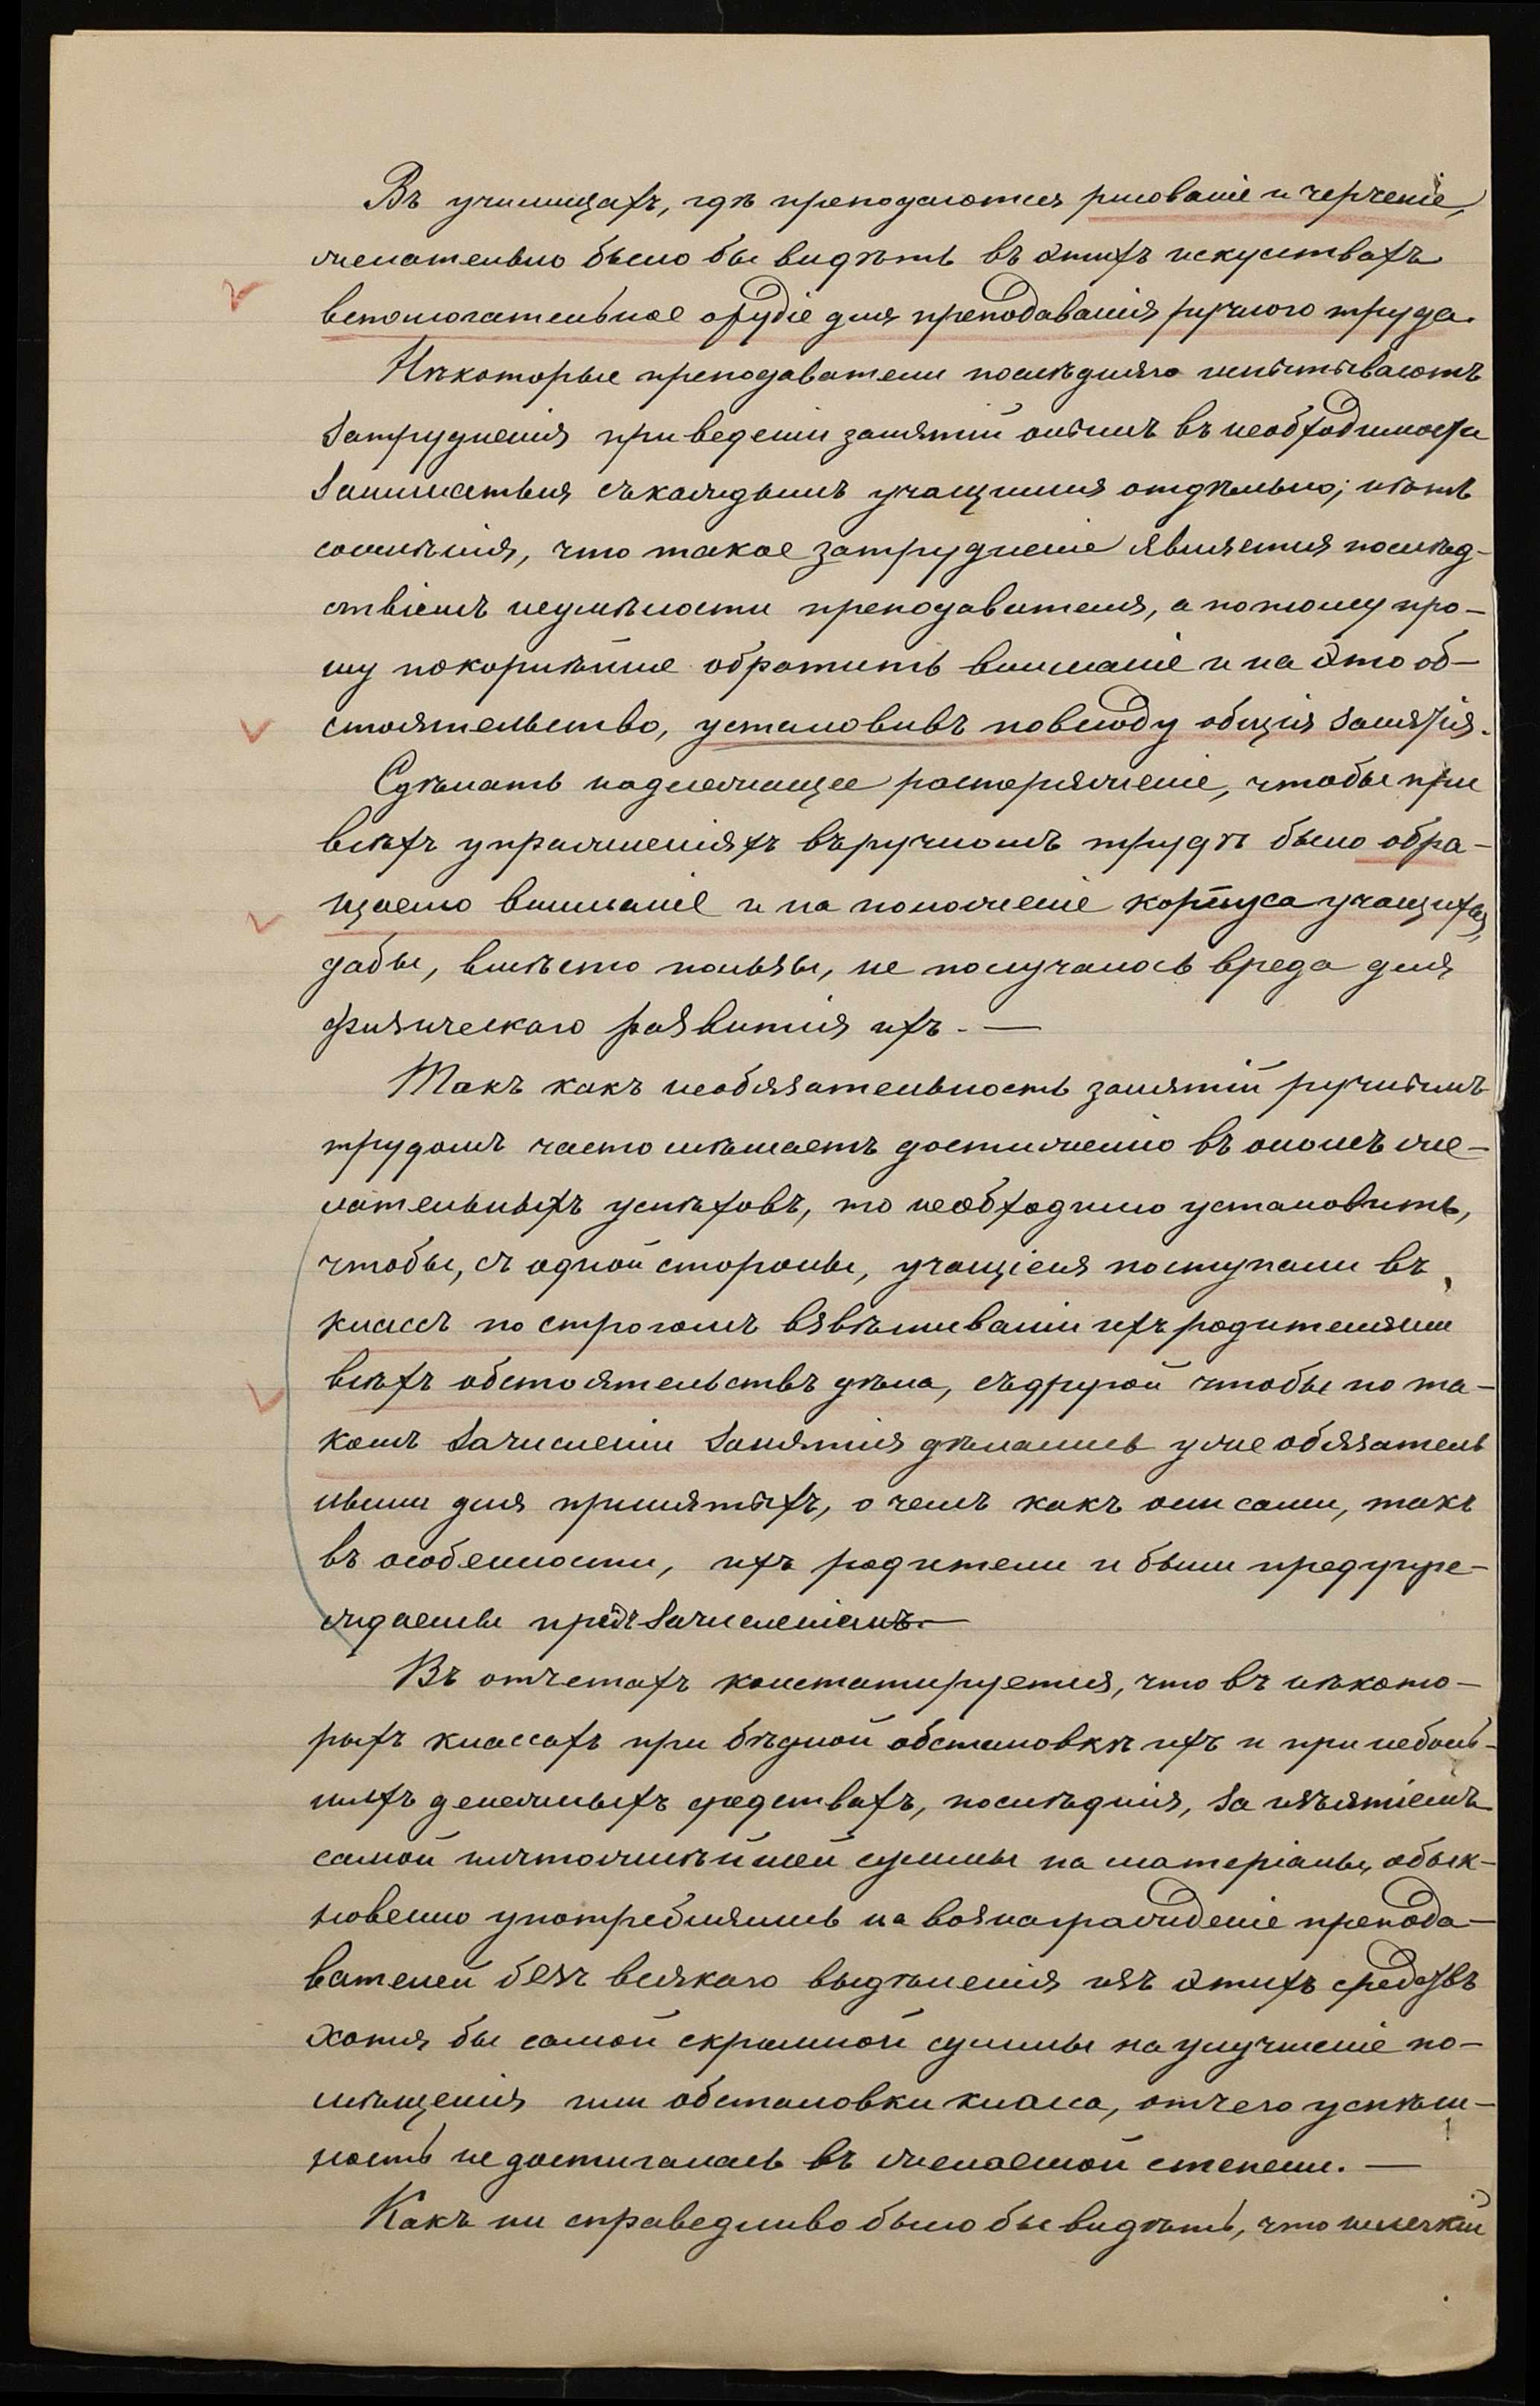 Въ училищахъ, гдѣ преподаются рисованіе и черченіе,
желательно было бы видѣть въ этихъ искуствахъ
вспомогательное орудіе для преподаванія ручного труда.
Нѣкоторые преподаватели послѣдняго испытываютъ
затрудненія при веденіи занятій онымъ въ необходимости
заниматься съ каждымъ учащимся отдѣльно; нѣтъ
сомнѣнія, что такое затрудненіе является послѣд-
ствіемъ неумѣлости преподавателя, а потому про-
шу покорнѣйше обратить вниманіе и на это об-
стоятельство, установивъ повсюду общія занятія.
Сдѣлать надлежащее распоряженіе, чтобы при
всѣхъ упражненіяхъ въ ручномъ трудѣ было обра-
щаемо вниманіе и на положеніе корпуса учащихся,
дабы, вмѣсто пользы, не получалось вреда для
физическаго развитія ихъ. —
Такъ какъ необязательность занятій ручнымъ
трудомъ часто мѣшаетъ достиженію въ ономъ же-
лательныхъ успѣховъ, то необходимо установить,
чтобы, съ одной стороны, учащіеся поступали въ
классъ по строгомъ взвѣшиваніи ихъ родителями
всѣхъ обстоятельствъ дѣла, съ другой чтобы по та-
комъ зачисленіи занятія дѣлались уже обязатель
ными для принятыхъ, о чемъ какъ они сами, такъ
въ особенности, ихъ родители и были предупре-
ждаемы предъ зачисленіемъ. —
Въ отчетахъ констатируется, что въ нѣкото-
рыхъ классахъ при бѣдной обстановкѣ ихъ и при неболь-
шихъ денежныхъ средствахъ, послѣднія, за изъятіемъ
самой ничтожнѣйшей суммы на матеріалы, обык-
новенно употреблялись на вознагражденіе препода-
вателей безъ всякаго выдѣленія изъ этихъ средствъ
хотя бы самой скромной суммы на улучшеніе по-
мѣщенія или обстановки класса, отчего успѣш-
ность не достигалась въ желаемой степени. —
Какъ ни справедливо было бы видѣть, что нелегкій